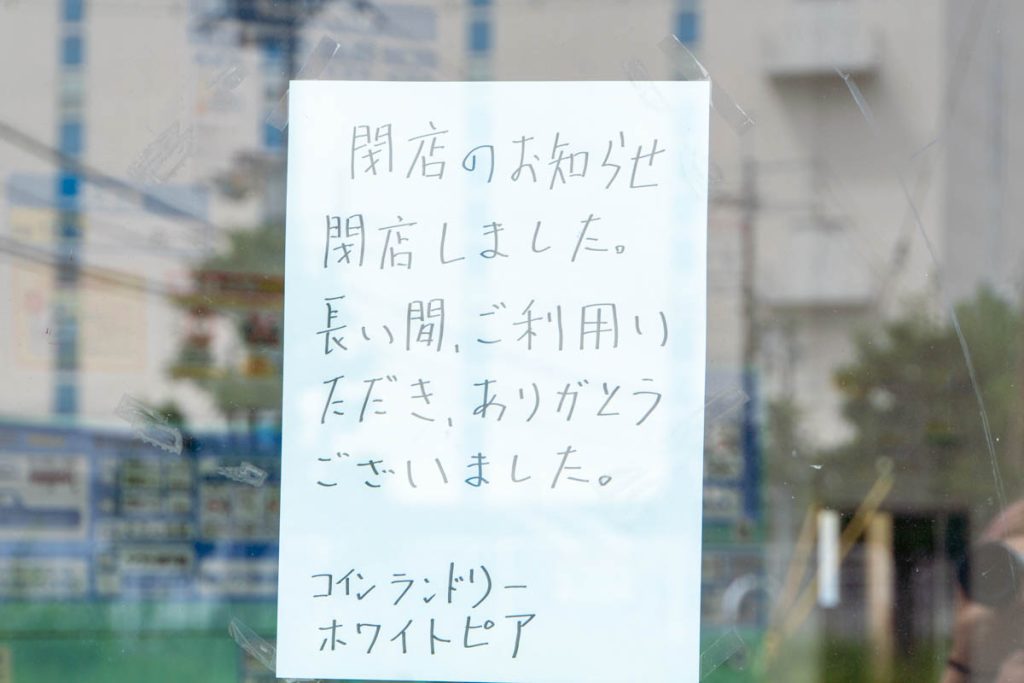 閉店のお知らせ
閉店しました。
長い間、ご利用い
ただき、ありがとう
ございました。
コインランドリー
ホワイトピア